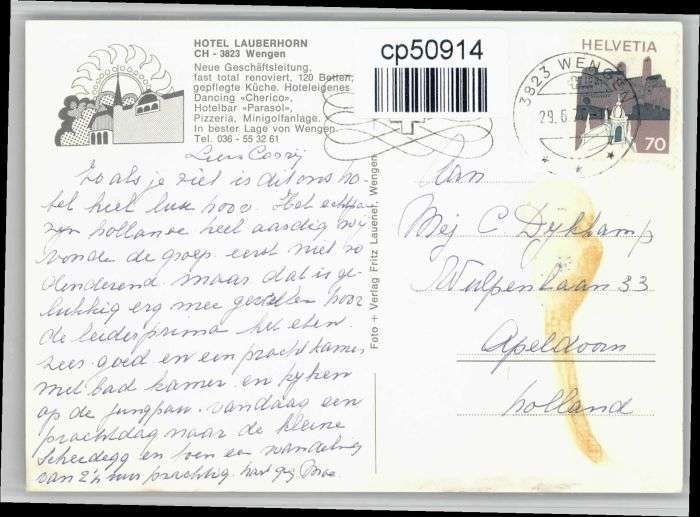 HOTEL LAUBERHORN
CH - 3823 Wengen
Neue Geschäftsleitung,
fast total renoviert, 120 Betten,
gepflegte Küche. Hoteleigenes
Dancing «Cherico»,
Hotelbar «Parasol»,
Pizzeria, Minigolfanlage.
In bester Lage von Wengen.
Tel. 036 - 55 32 61
cp50914
HELVETIA
70
3823 WENGEN
29.6
Foto + Verlag Fritz Lauener, Wengen
Zo als je ziet is dit ons ho-
tel heel luxe hoor. Het
hollands heel aardig wij
vonde de groep eerst niet zo
denderend maar dat is ge-
lukkig erg mee gevallen hoor
de leidster prima het eten
zeer goed en een pracht kamer
met bad kamer en kijken
op de Jungfrau. vandaag een
prachtdag naar de kleine
Scheidegg en toen een wandeling
van 2½ uur prachtig. hart gr Moe
Aan
Mej C Dijkkamp
Wulpenlaan 33
Apeldoorn
Holland